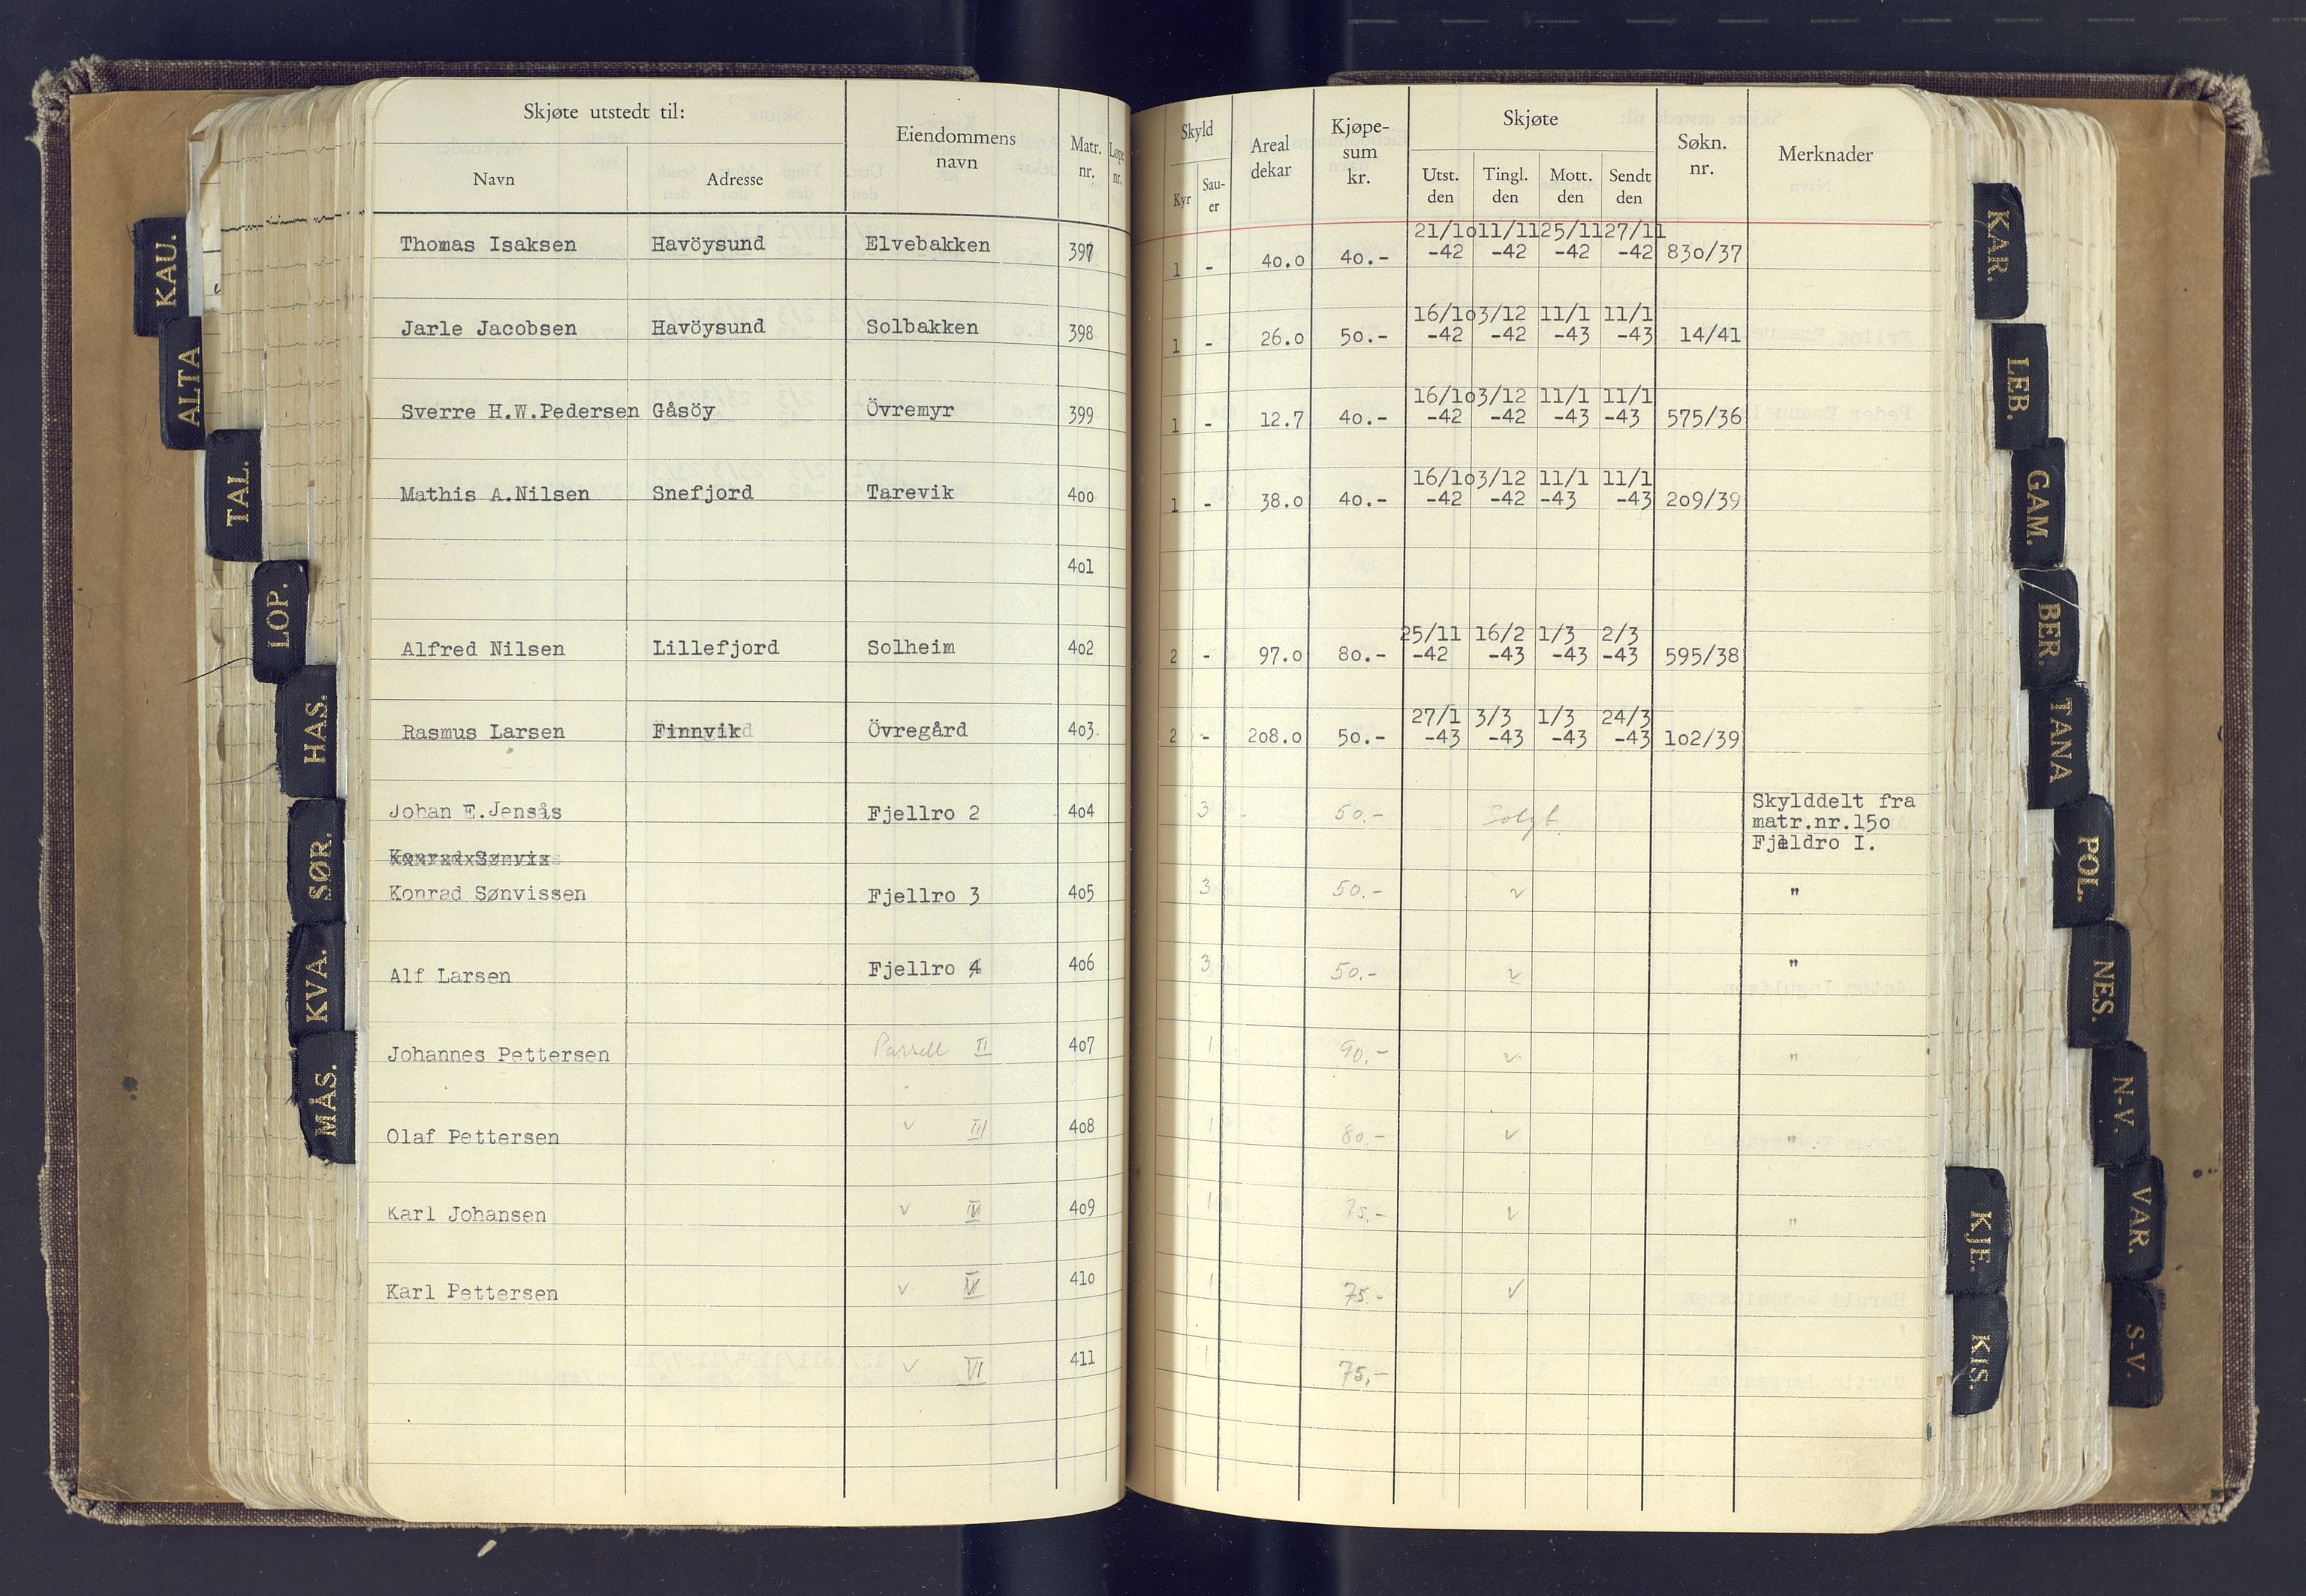 Skjøte utstedt til:
Navn
Adresse
Eiendommens
navn
Matr.
nr.
Løpe
nr.
Skyld
Kyr
Sau-
er
Areal
dekar
Kjøpe-
sum
kr.
Skjøte
Utst.
den
Tingl.
den
Mott.
den
Sendt
den
Søkn.
nr.
Merknader
21/10 11/11 25/11 27/11
Thomas Isaksen Havöysund Elvebakken 397 1 - 40.0 40.- -42 -42 -42 -42 830/37
16/10 3/12 11/1 11/1
Jarle Jacobsen Havöysund Solbakken 398 1 - 26.0 50.- -42 -42 -43 -43 14/41
16/10 3/12 11/1 11/1
Sverre H.W.Pedersen Gåsöy Övremyr 399 1 - 12.7 40.- -42 -42 -43 -43 575/36
16/10 3/12 11/1 11/1
Mathis A.Nilsen Snefjord Tarevik 400 1 - 38.0 40.- -42 -42 -43 -43 209/39
401
25/11 16/2 1/3 2/3
Alfred Nilsen Lillefjord Solheim 402 2 - 97.0 80.- -42 -43 -43 -43 595/38
27/1 3/3 1/3 24/3
Rasmus Larsen Finnvik Övregård 403 2 - 208.0 50.- -43 -43 -43 -43 102/39
Johan E.Jensås Fjellro 2 404 3 50.- Solgt Skylddelt fra
matr.nr.150
Fjeldro I.
Konrad Sønvis
Konrad Sønvissen Fjellro 3 405 3 50.- "
Alf Larsen Fjellro 4 406 3 50.- "
Johannes Pettersen Parsell II 407 1 90.- "
Olaf Pettersen III 408 1 80.- "
Karl Johansen IV 409 1 75.- "
Karl Pettersen V 410 1 75.-
VI 411 1 75,-
KAU.
ALTA
TAL.
LOP.
HAS.
SØR.
KVA.
MÅS.
KAR.
LEB.
GAM.
BER.
TANA
POL.
NES.
N-V.
VAR.
S-V.
KJE.
KIS.